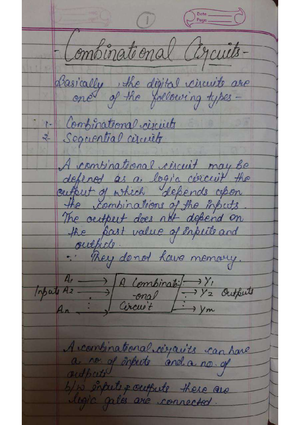 1
Date
Page
- Combinational Circuits -
Basically, the digital circuits are
one of the following types -
1. Combinational circuits
2. Sequential circuits
A combinational circuit may be
defined as a logic circuit the
output of which depends upon
the combinations of the inputs.
The output does not depend on
the past value of inputs and
outputs
∴ They do not have memory.
Inputs A1 A2 An
A Combinati
-onal
Circuit
Y1 Y2 Ym Outputs
A combinational circuits can have
a no. of inputs and a no. of
outputs
b/w inputs & outputs there are
logic gates are connected